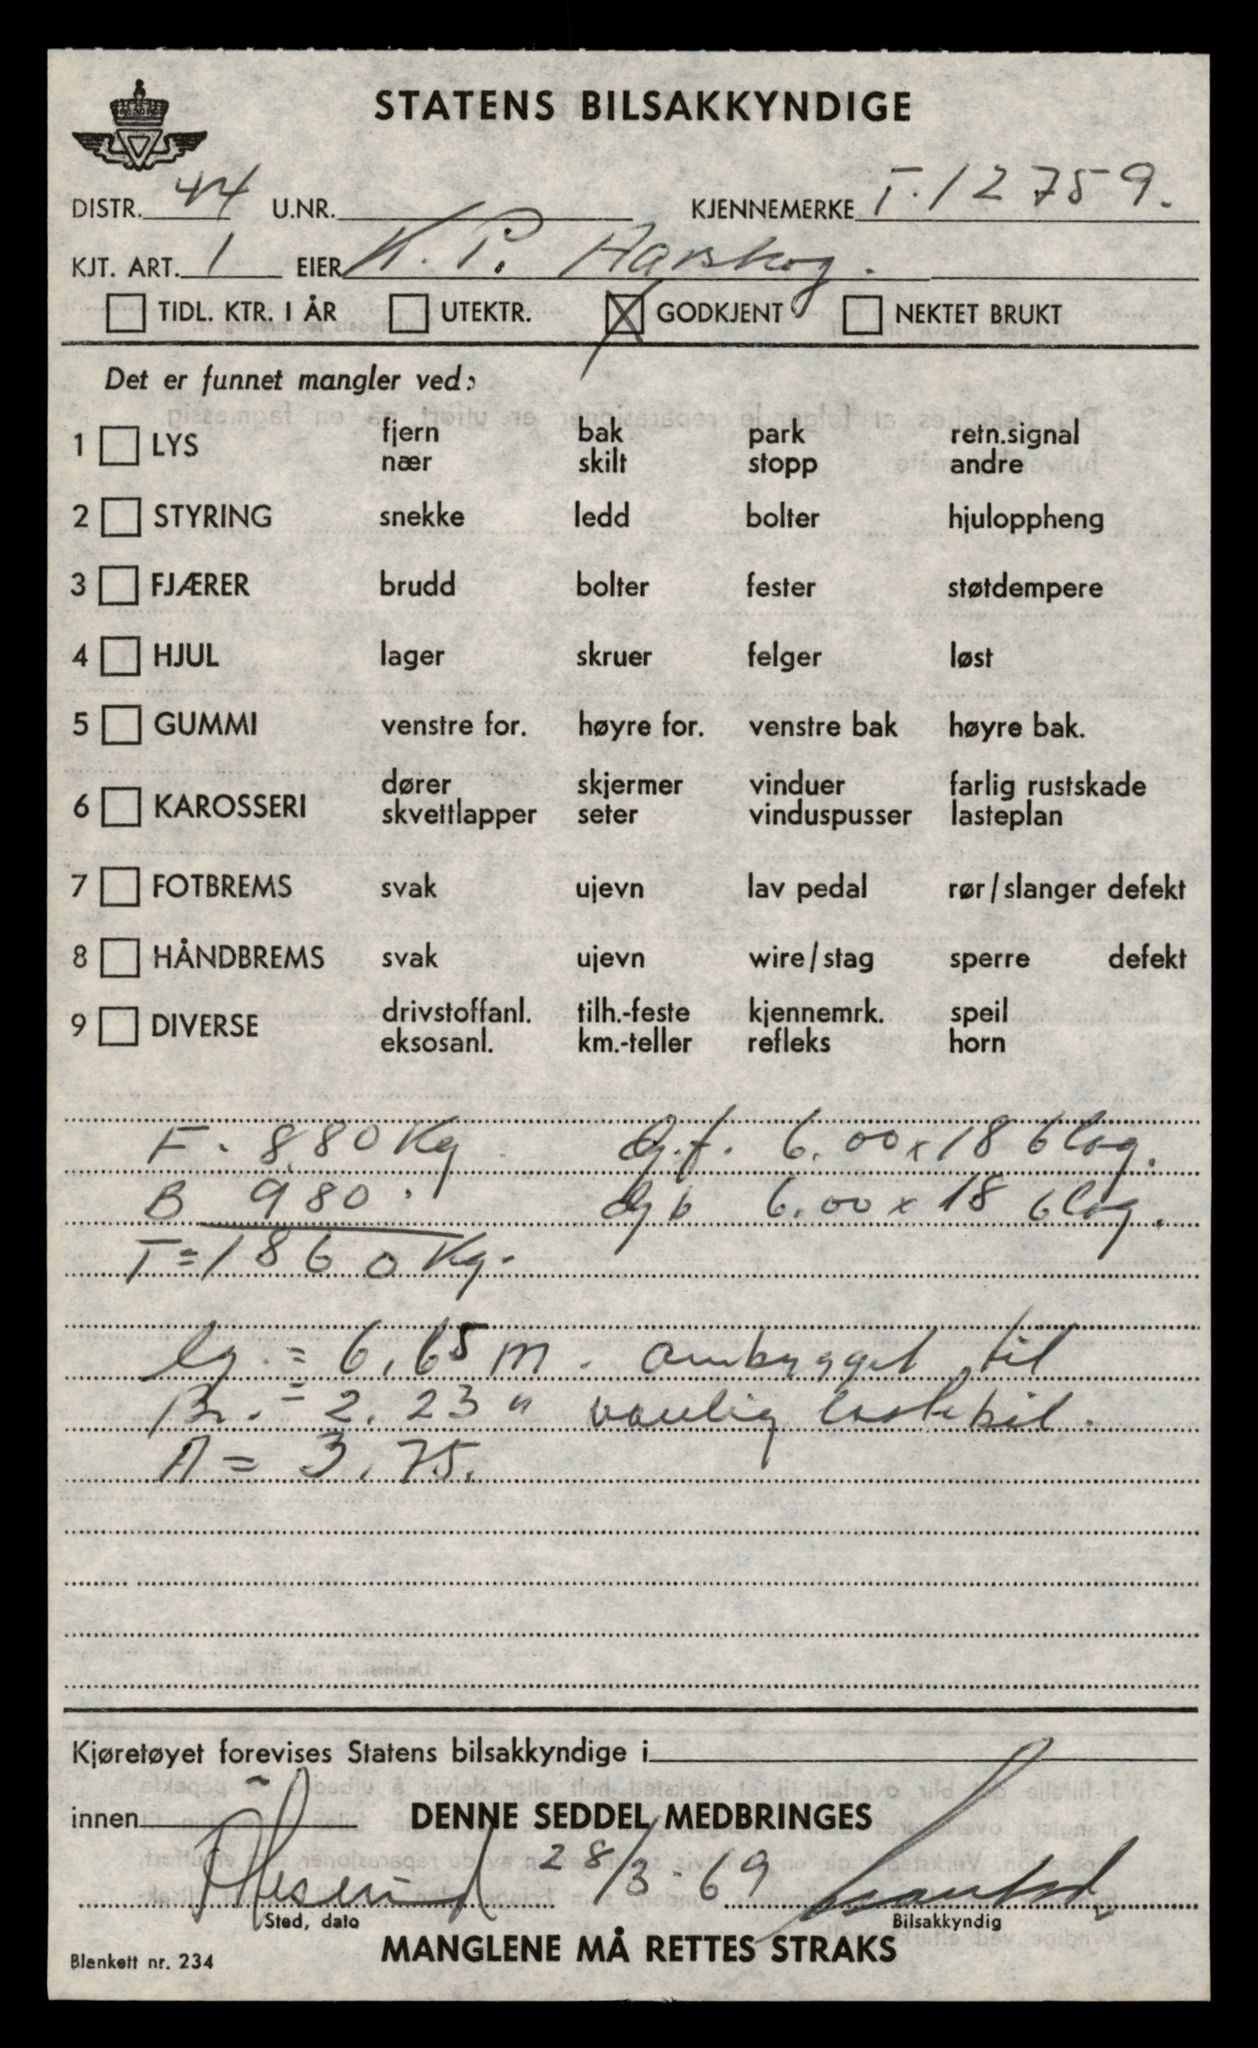 STATENS BILSAKKYNDIGE
DISTR. 44 U.NR. KJENNEMERKE T.12759.
KJT. ART. 1 EIER K. P. Aarskog.
TIDL. KTR. I ÅR UTEKTR. GODKJENT NEKTET BRUKT
Det er funnet mangler ved:
1 LYS fjern bak park retn.signal
nær skilt stopp andre
2 STYRING snekke ledd bolter hjuloppheng
3 FJÆRER brudd bolter fester støtdempere
4 HJUL lager skruer felger løst
5 GUMMI venstre for. høyre for. venstre bak høyre bak.
6 KAROSSERI dører skjermer vinduer farlig rustskade
skvettlapper seter vinduspusser lasteplan
7 FOTBREMS svak ujevn lav pedal rør/slanger defekt
8 HÅNDBREMS svak ujevn wire/stag sperre defekt
9 DIVERSE drivstoffanl. tilh.-feste kjennemrk. speil
eksosanl. km.-teller refleks horn
F. 880 Kg. dg.f. 6.00 x 18 6 lag.
B 980. dg b 6.00 x 18 6 lag.
T = 1860 Kg.
lg. = 6,65 m. ombygget til
Br. = 2.23 " vanlig lastebil.
A = 3,75.
Kjøretøyet forevises Statens bilsakkyndige i
innen DENNE SEDDEL MEDBRINGES
Ålesund 28/3-69
Sted, dato Bilsakkyndig
MANGLENE MÅ RETTES STRAKS
Blankett nr. 234